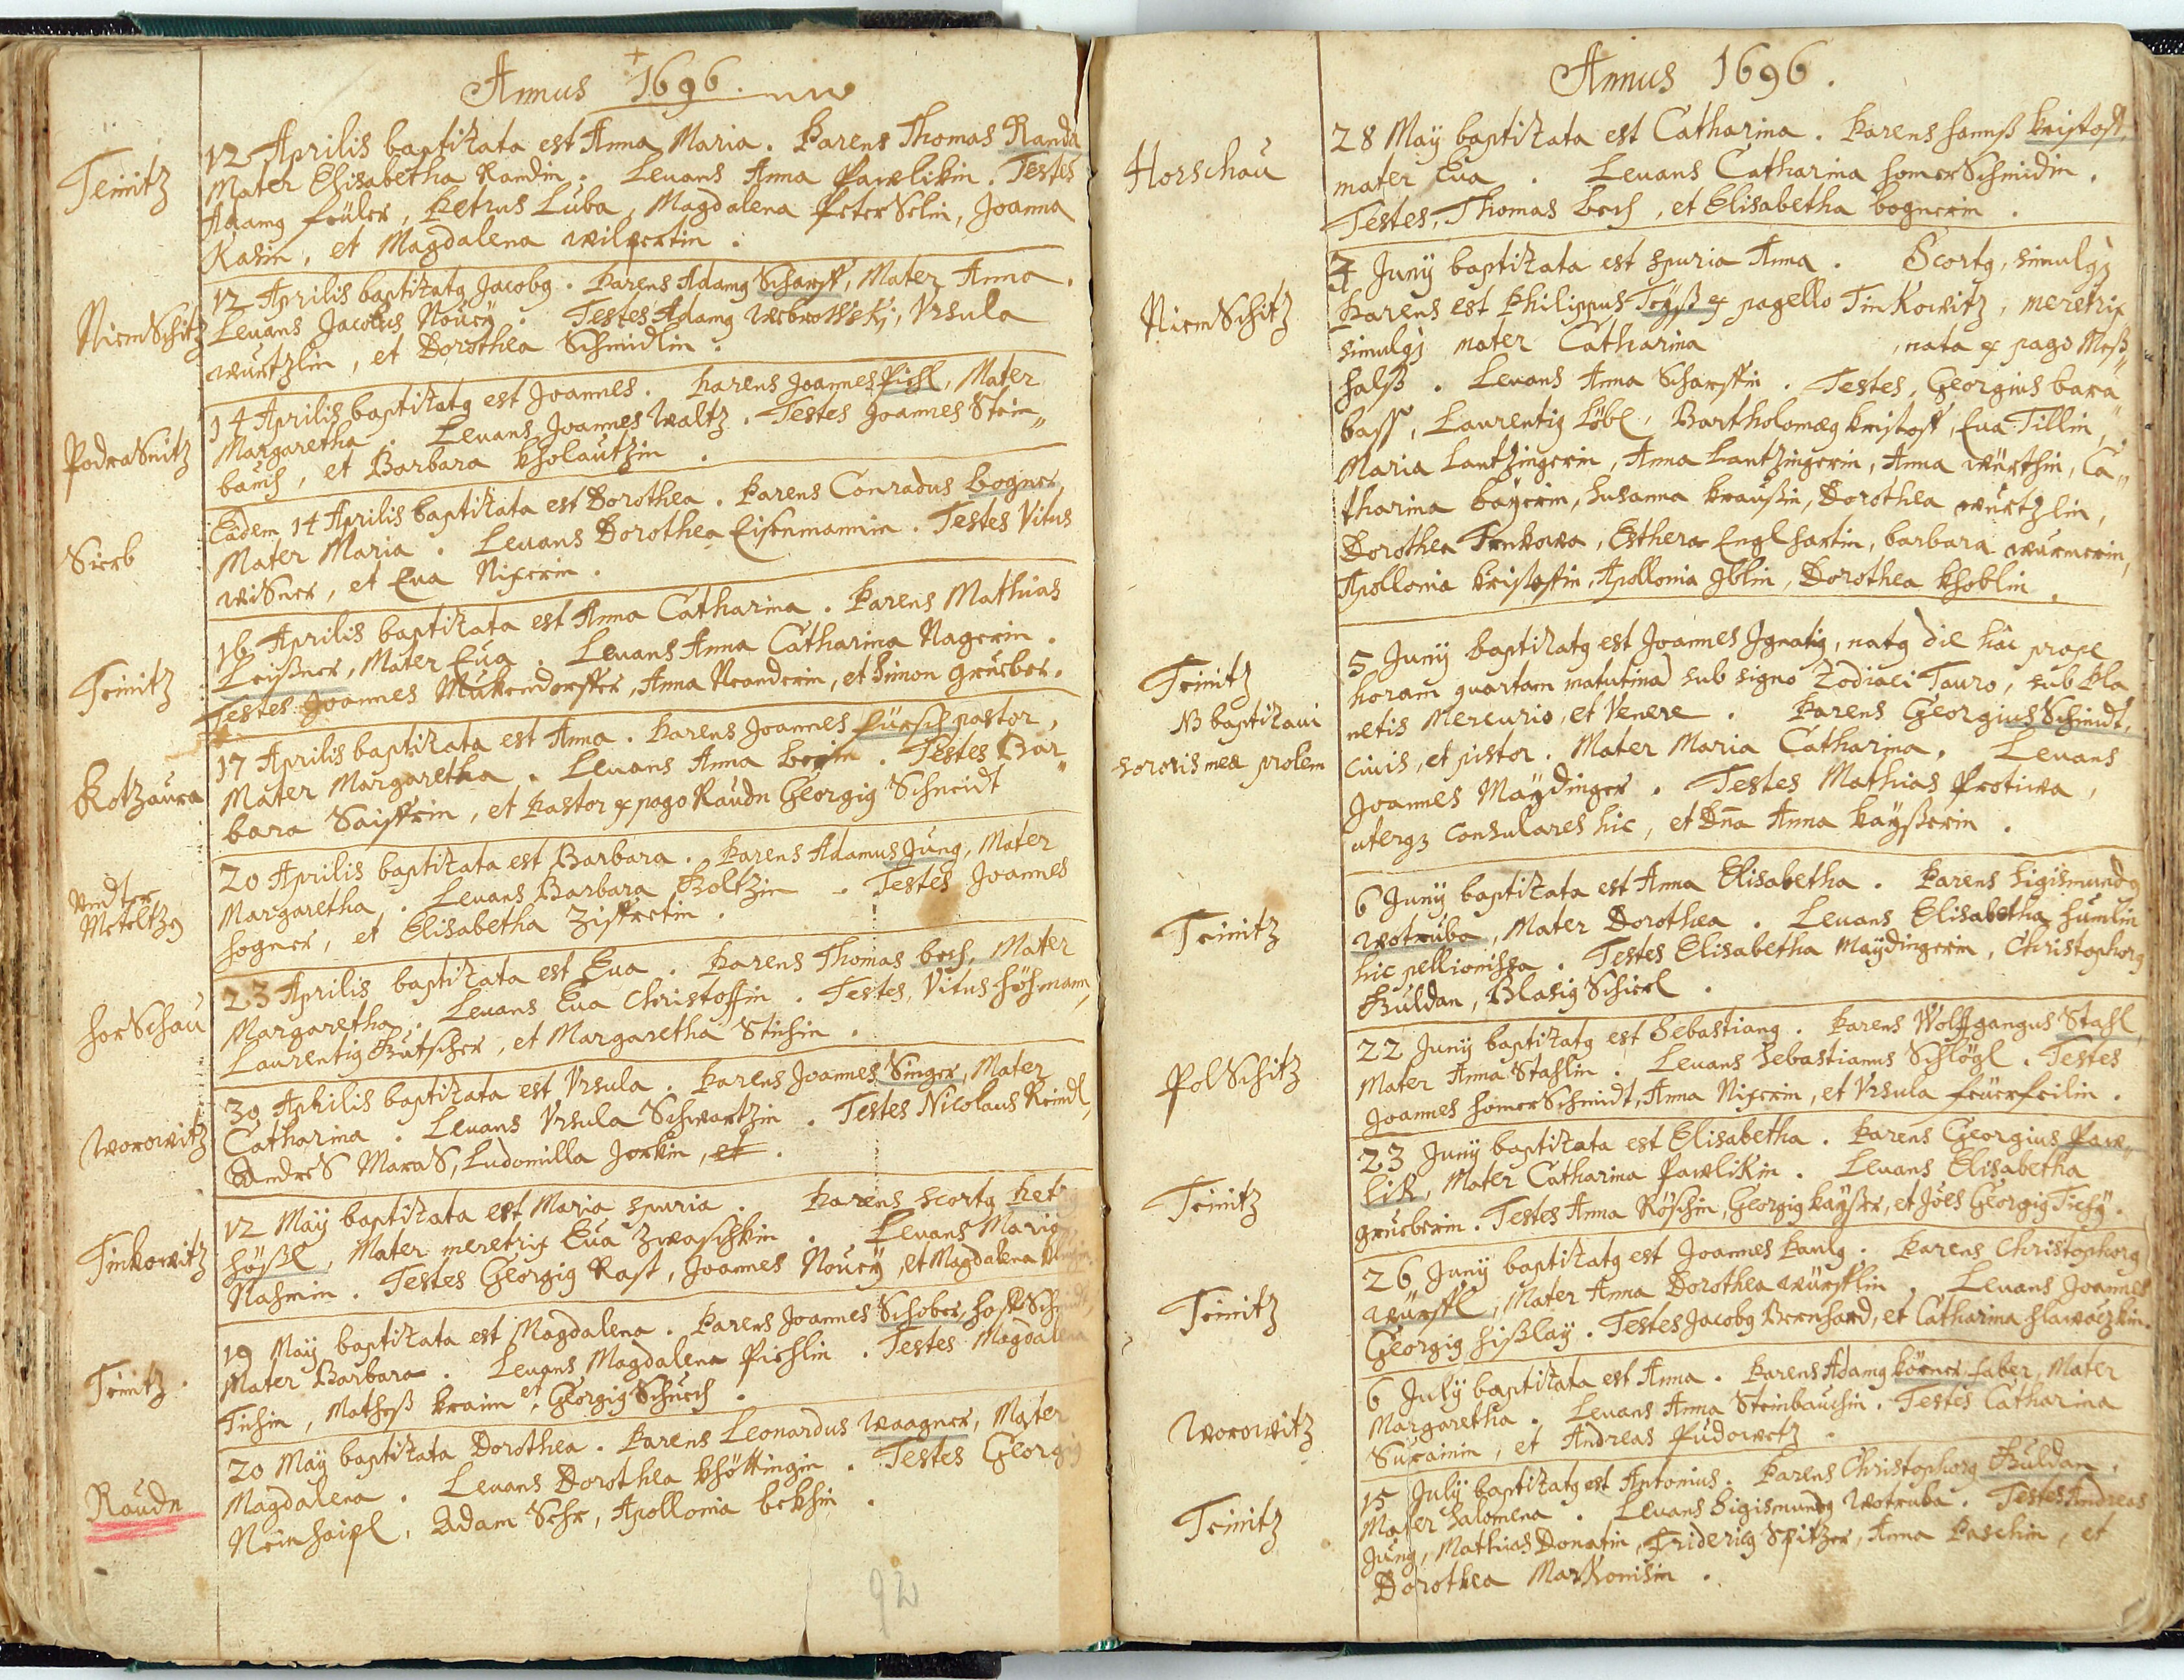 Annus 1696.
Teinitz
12 Aprilis baptizata est Anna Maria. Parens Thomas Randa
Mater Elisabetha Randin. Levans Anna Pawlikin. Testes
Adamg feüler, Petrus Luba, Magdalena PeterSelin, Joanna
Kasin, et Magdalena wilpertin.
NiemSchitz
12 Aprilis baptizatg Jacobg. Parens Adamg Scharff, Mater Anna.
Levans Jacobus Noucy. Testes Adamg, Vrsula
wurtzlin, et Dorothea Schmidlin.
PodraSnitz
14 Aprilis baptizatg est Joannes. Parens Joannes Pichl, Mater
Margaretha. Levans Joannes Waltz. Testes Joannes Stein„
bauch, et Barbara kholautzin.
Sirb
Eadem 14 Aprilis baptizata est Dorothea. Parens Conradus bogner,
Mater Maria. Levans Dorothea Eisenmannin. Testes Vitus
wiSner, et Eva Nixerin.
Teinitz
16 Aprilis baptizata est Anna Catharina. Parens Mathias
Leißner, Mater Eva. Levans Anna Catharina Nagerin.
Testes Joannes Mukendorffer, Anna Neanderin, et Simon gruеber.
Kotzaura
17 Aprilis baptizata est Anna. Parens Joannes fürsch pastor,
Mater Margaretha. Levans Anna. Testes Bar„
bara Saiffrin, et Pastor ex pago Raudn Georgig Schneidt
Meteltzg
20 Aprilis baptizata est Barbara. Parens Adamus Jung, Mater
Margaretha. Levans Barbara Boltzin. Testes Joannes
hogner, et Elisabetha Ziffretin.
horSchau
23 Aprilis baptizata est Eva. Parens Thomas bech, Mater
Margaretha. Levans Eva Christoffin. Testes, Vitus höhmann,
Laurentig Butscher, et Margaretha Stichin.
Worowitz
30 Aprilis baptizata est Vrsula. Parens Joannes Singer, Mater
Catharina. Levans Vrsula Schwartzin. Testes Nicolaus Reindl,
AndreS MaraS, Ludomilla Jerkin, et.
Tinkowitz
12 Maÿ baptizata est Maria spuria. Parens scortg Petr
hößl, Mater meretrix Eva Zwaschkin. Levans Maria
Nahmin. Testes Georgig Rast, Joannes Noucy, et Magdalena
Teinitz.
19 Maÿ baptizata est Magdalena. Parens Joannes Schober, hoff Schmidt,
Mater Barbara. Levans Magdalena Pichlin. Testes Magdalena
Tichin, Matheß kraim et Georgig Schuech.
Raudn
20 Maÿ baptizata Dorothea. Parens Leonardus waagner, Mater
Magdalena. Levans Dorothea khöttingin. Testes Georgig
Neinhaipl, Adam Sehr, Apollonia bekhin.
92
Annus 1696.
Horschau
28 Maÿ baptizata est Catharina. Parens hannß kristoff,
mater Eva. Levans Catharina homerSchmidin.
Testes, Thomas bech, et Elisabetha bognerin.
NiemSchitz
4 Junÿ baptizata est spuria Anna. Scortg, simulqz
Parens est Philippus Teyß ex pagello Tinkowitz, meretrix
simulqz mater Catharina, nata ex pago Meß„
halß. Levans Anna Scharffin. Testes, Georgius bara„
bass, Laurentig Löbl, Bartholomæg kristoff, Eva Tillin,
Maria Lantzingerin, Anna Lantzingerin, Anna würthin, Ca„
tharina baÿerin, Susanna kraußin, Dorothea wurtzlin,
Dorothea Trnkowa, Esthera Englhartin, barbara wurmerin,
Apollonia kristoffin, Apollonia Jblin, Dorothea khoblin.
Teinitz
NB baptizaui
sororis meæ prolem
5 Junÿ baptizatg est Joannes Jgnatig, natg die hac prope
horam quartam matutina sub signo Zodiaci Tauro, sub Pla
netis Mercurio, et Venere. Parens Georgius Schmidt,
civis, et pistor. Mater Maria Catharina. Levans
Joannes Maÿdinger. Testes Mathias Protiwa,
uterqz Consulares hic, et Dna Anna kayßerin.
Teinitz
6 Junÿ baptizata est Anna Elisabetha. Parens Sigismundg
Wotruba, Mater Dorothea. Levans Elisabetha humlin
hic pellionissa. Testes Elisabetha Maÿdingerin, Christophorg
Buldan, Blasig Schierl.
PolSchitz
22 Junÿ baptizatg est Sebastiang. Parens Wolffgangus Stahl,
Mater Anna Stahlin. Levans Sebastianus Schlögl. Testes
Joannes homerSchmidt, Anna Nixerin, et Vrsula feuerfeilin.
Teinitz
23 Junÿ baptizata est Elisabetha. Parens Georgius Paw„
lik, Mater Catharina Pawlikin. Levans Elisabetha
grueberin. Testes Anna Röschin, Georgig kayßer, et Joes Georgig Tichÿ.
Teinitz
26 Junÿ baptizatg est Joannes Paulg. Parens Christophorg
würffl, Mater Anna Dorothea würfflin. Levans Joannes
Georgig hißlaÿ. Testes Jacobg Bernhard, et Catharina hlawaczkin.
Worowitz
6 Julÿ baptizata est Anna. Parens Adamg körner, faber, Mater
Margaretha. Levans Anna Steinbauchin. Testes Catharina
Suxainin, et Andreas Pudowetz.
Teinitz
15 Julÿ baptizatg est Antonius. Parens Christophorg Buldan.
Mater Salomena. Levans Sigismundg Wotruba. Testes Andreas
Jung, Mathias Donatin, Friderig Spitzer, Anna Paschin, et
Dorothea Markonisin.